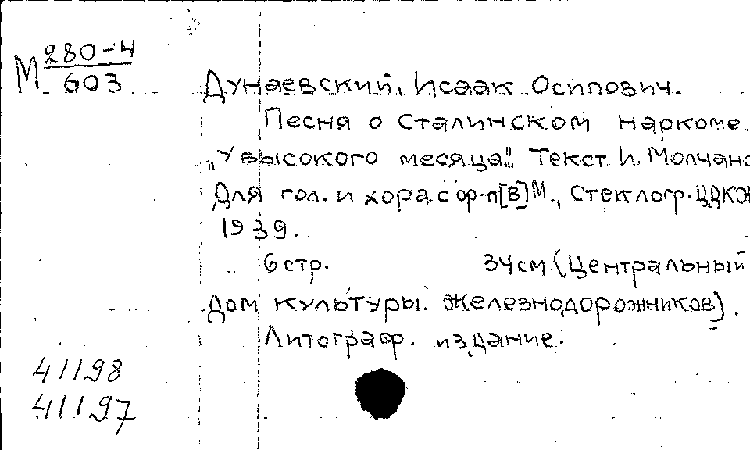 М 280-4
603
Дунаевский, Исаак Осипович.
Песня о Сталинском наркоме.
"У высокого месяца". Текст И. Молчано
Для гол. и хора с ор-п[в] М., Стеклогр. ЦДКЖ
1939.
6 стр. 34 см (Центральный
дом культуры железнодорожников).
Литограф. издание.
41198
41197